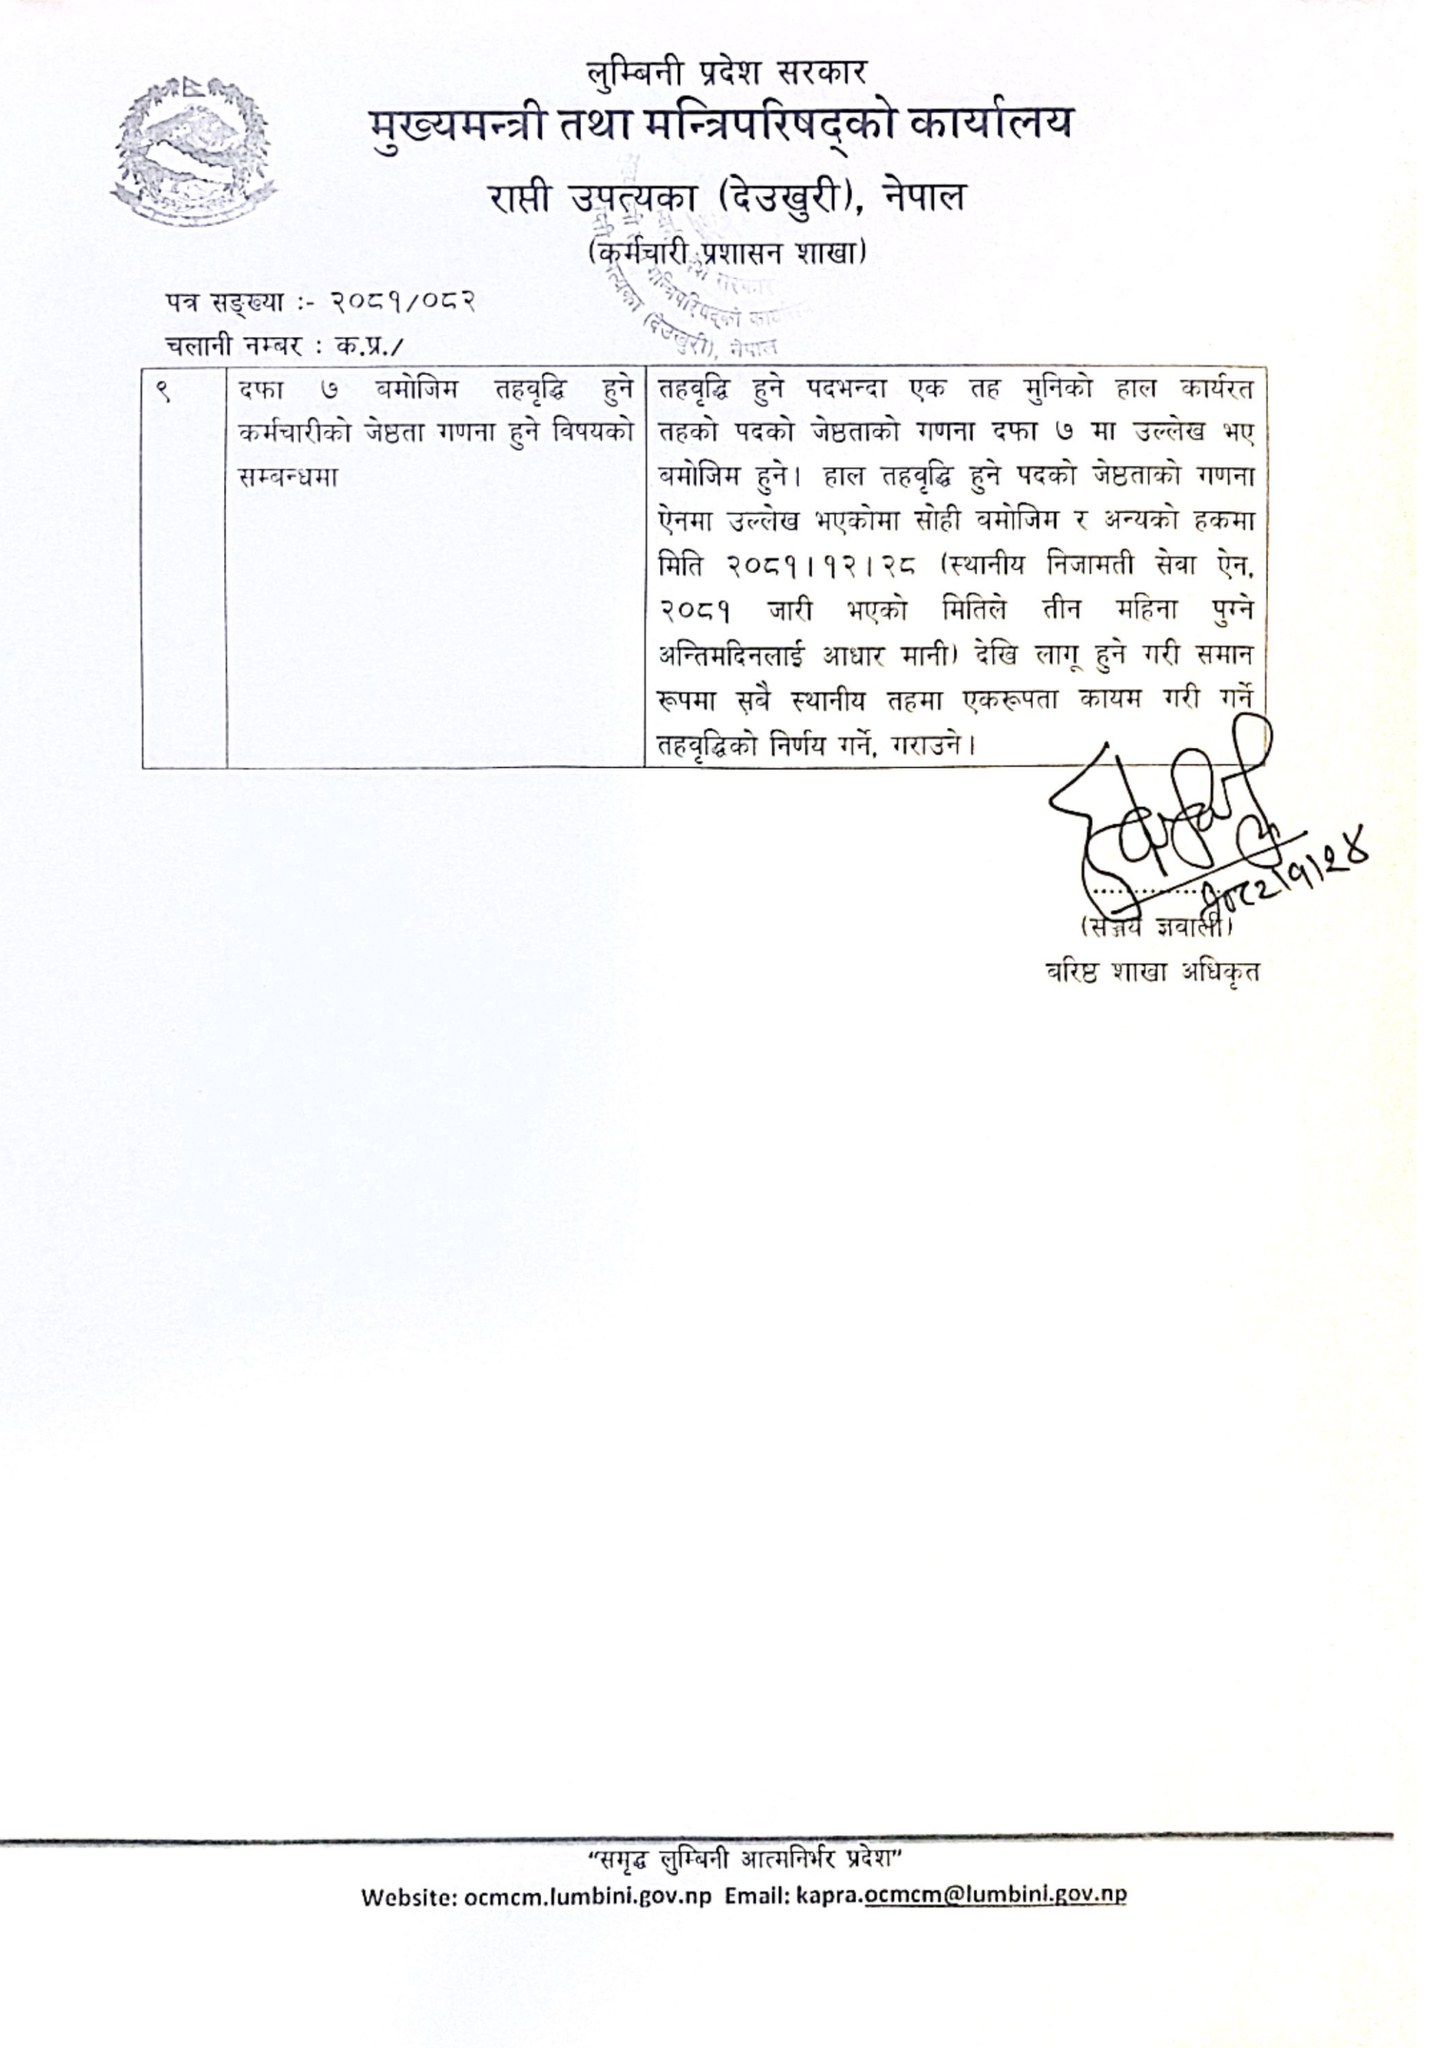 लुम्बिनी प्रदेश सरकार
मुख्यमन्त्री तथा मन्त्रिपरिषद्को कार्यालय
राप्ती उपत्यका (देउखुरी), नेपाल
(कर्मचारी प्रशासन शाखा)
पत्र सङ्ख्या :- २०८१/०८२
चलानी नम्बर : क.प्र./
मन्त्रिपरिषद्को
(देउखुरी), नेपाल
९
दफा ७ बमोजिम तहवृद्धि हुने
कर्मचारीको जेष्ठता गणना हुने विषयको
सम्बन्धमा
तहवृद्धि हुने पदभन्दा एक तह मुनिको हाल कार्यरत
तहको पदको जेष्ठताको गणना दफा ७ मा उल्लेख भए
बमोजिम हुने। हाल तहवृद्धि हुने पदको जेष्ठताको गणना
ऐनमा उल्लेख भएकोमा सोही बमोजिम र अन्यको हकमा
मिति २०८१।१२।२८ (स्थानीय निजामती सेवा ऐन,
२०८१ जारी भएको मितिले तीन महिना पुग्ने
अन्तिमदिनलाई आधार मानी) देखि लागू हुने गरी समान
रूपमा सबै स्थानीय तहमा एकरूपता कायम गरी गर्ने
तहवृद्धिको निर्णय गर्ने, गराउने।
२०८२/१/२४
(सञ्जय ज्ञवाली)
बरिष्ठ शाखा अधिकृत
“समृद्ध लुम्बिनी आत्मनिर्भर प्रदेश”
Website: ocmcm.lumbini.gov.np Email: kapra.ocmcm@lumbini.gov.np